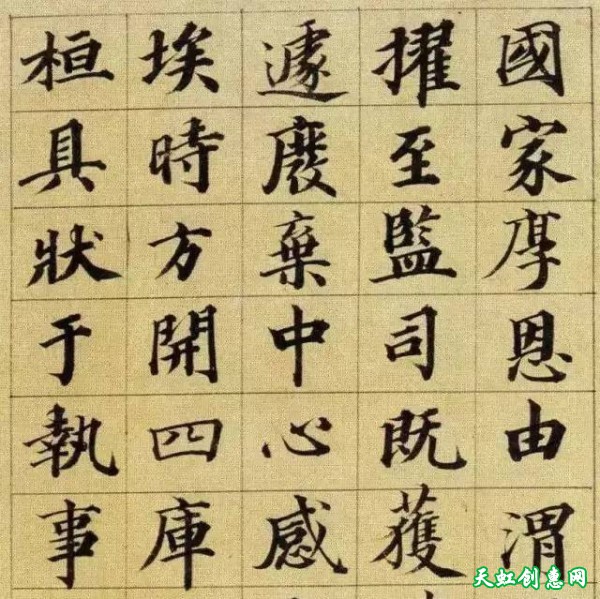 國家厚恩由渭
擢至監司既獲
遽廢棄中心感
埃時方開四庫
桓具狀于執事
天虹创惠网